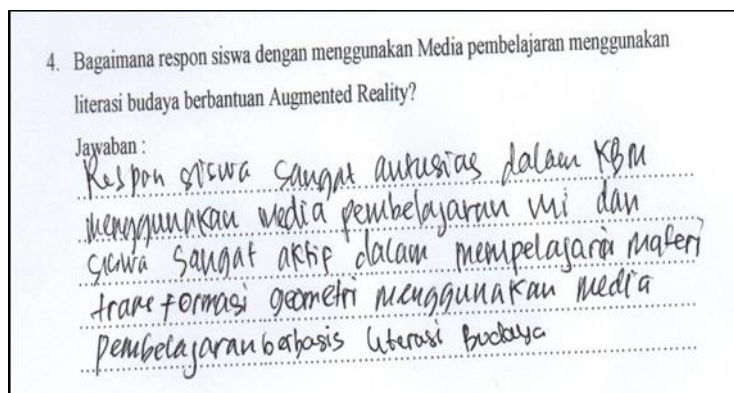 4. Bagaimana respon siswa dengan menggunakan Media pembelajaran menggunakan
literasi budaya berbantuan Augmented Reality?
Jawaban :
Respon siswa sangat antusias dalam KBM
menggunakan media pembelajaran ini dan
siswa sangat aktif dalam mempelajari materi
transformasi geometri menggunakan media
pembelajaran berbasis literasi Budaya